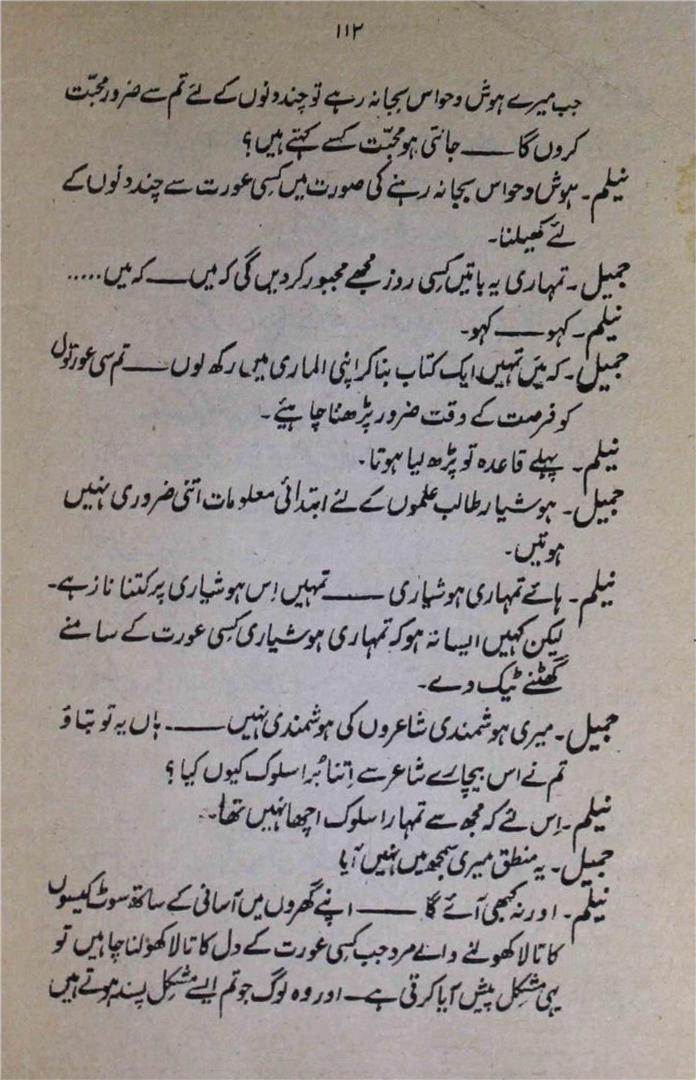 ۱۱۲
جب میرے ہوش و حواس بجا نہ رہے تو چند دنوں کے لئے تم سے ضرور محبّت
کروں گا —— جانتی ہو محبّت کسے کہتے ہیں؟
نیلم۔ ہوش و حواس بجا نہ رہنے کی صورت میں کسی عورت سے چند دنوں کے
لئے کھیلنا۔
جمیل۔ تمہاری یہ باتیں کسی روز مجھے مجبور کر دیں گی کہ میں —— کہ میں.....
نیلم۔ کہو —— کہو۔
جمیل۔ کہ میں تمہیں ایک کتاب بنا کر اپنی الماری میں رکھ لوں —— تم سی عورتوں
کو فرصت کے وقت ضرور پڑھنا چاہیئے۔
نیلم۔ پہلے قاعدہ تو پڑھ لیا ہوتا۔
جمیل۔ ہوشیار طالب علموں کے لئے ابتدائی معلومات اتنی ضروری نہیں
ہوتیں۔
نیلم۔ ہائے تمہاری ہوشیاری —— تمہیں اِس ہوشیاری پر کتنا ناز ہے۔
لیکن کہیں ایسا نہ ہو کہ تمہاری ہوشیاری کسی عورت کے سامنے
گھٹنے ٹیک دے۔
جمیل۔ میری ہوشمندی شاعروں کی ہوشمندی نہیں ——۔ ہاں یہ تو بتاؤ
تم نے اس بیچارے شاعر سے اِتنا بُرا سلوک کیوں کیا؟
نیلم۔ اِس لئے کہ مجھ سے تمہارا سلوک اچھا نہیں تھا۔
جمیل۔ یہ منطق میری سمجھ میں نہیں آیا
نیلم۔ اور نہ کبھی آئے گا —— اپنے گھروں میں آسانی کے ساتھ سوٹ کیسوں
کا تالا کھولنے والے مرد جب کسی عورت کے دل کا تالا کھولنا چاہیں تو
یہی مشکل پیش آیا کرتی ہے — اور وہ لوگ جو تم ایسے مشکل پسند ہوتے ہیں